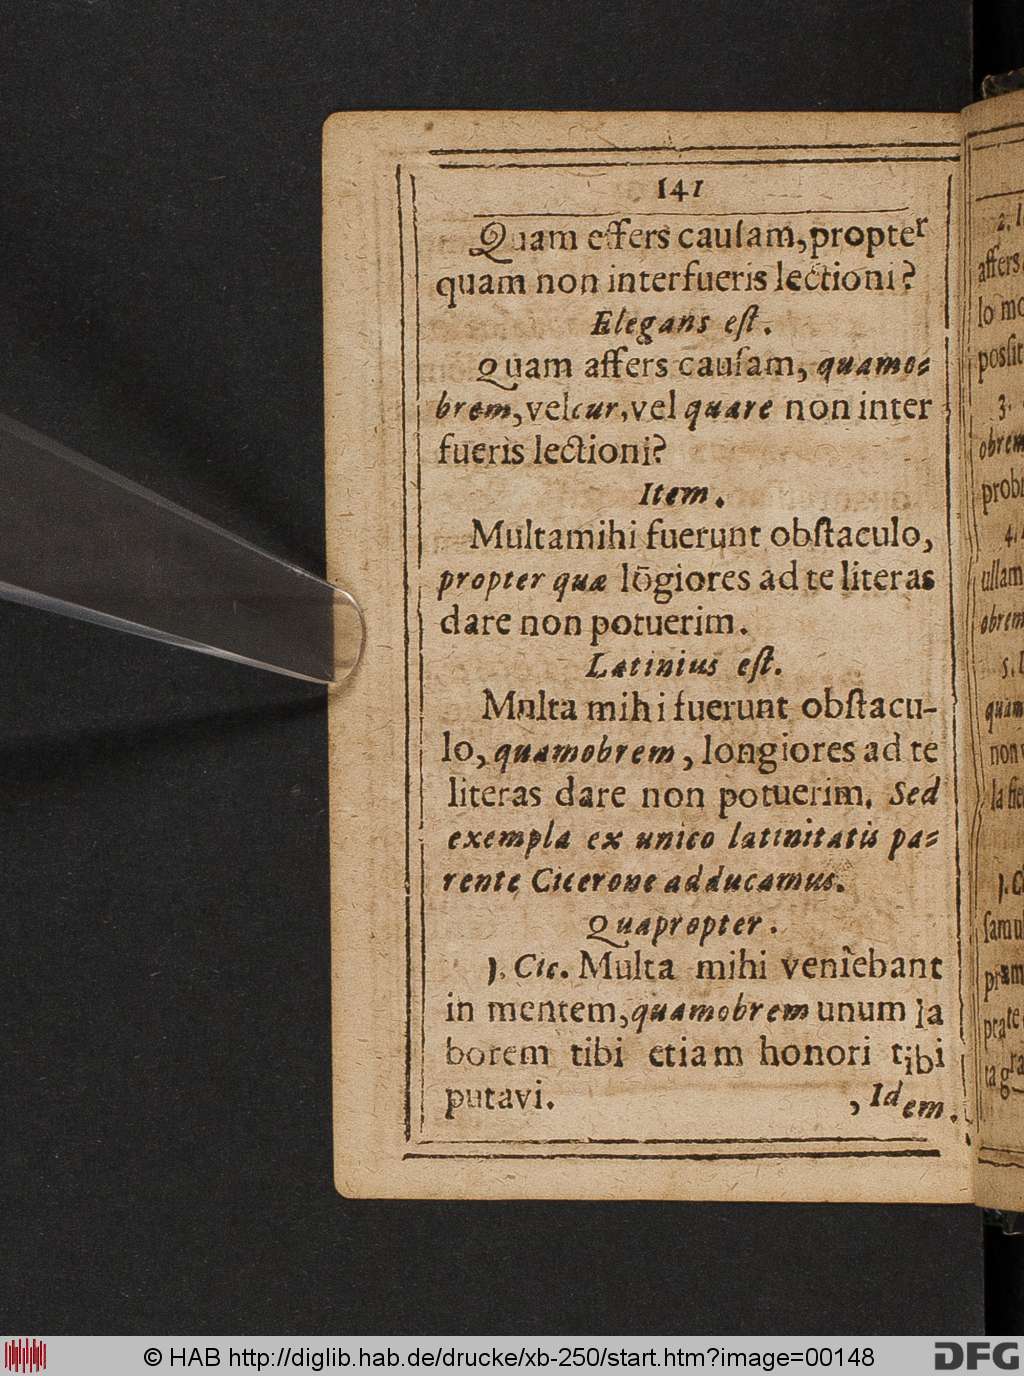 141
Quam effers cauſam, propter
quam non interfueris lectioni?
Elegans eſt.
Quam affers cauſam, quamo-
brem, vel cur, vel quare non inter
fueris lectioni?
Item.
Multa mihi fuerunt obſtaculo,
propter quæ lōgiores ad te literas
dare non potuerim.
Latinius eſt.
Mnlta mihi fuerunt obſtacu-
lo, quamobrem, longiores ad te
literas dare non potuerim. Sed
exempla ex unico latinitatis pa-
rente Cicerone adducamus.
Quapropter.
1. Cic. Multa mihi veniebant
in mentem, quamobrem unum la
borem tibi etiam honori tibi
putavi.
, Idem.
2.
affers
lo mo
poſſit
3.
obrem
probi
4.
ullam
obrem
5.
quam
non
la fie
1. C
ſamu
ta gra
© HAB http://diglib.hab.de/drucke/xb-250/start.htm?image=00148
DFG